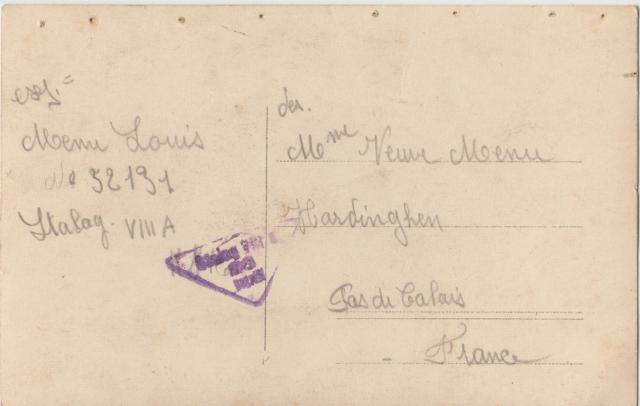 exp.=
Menu Louis
No 52191
Stalag. VIII A
des.
Mme Veuve Menu
Hardinghen
Pas de Calais
- France